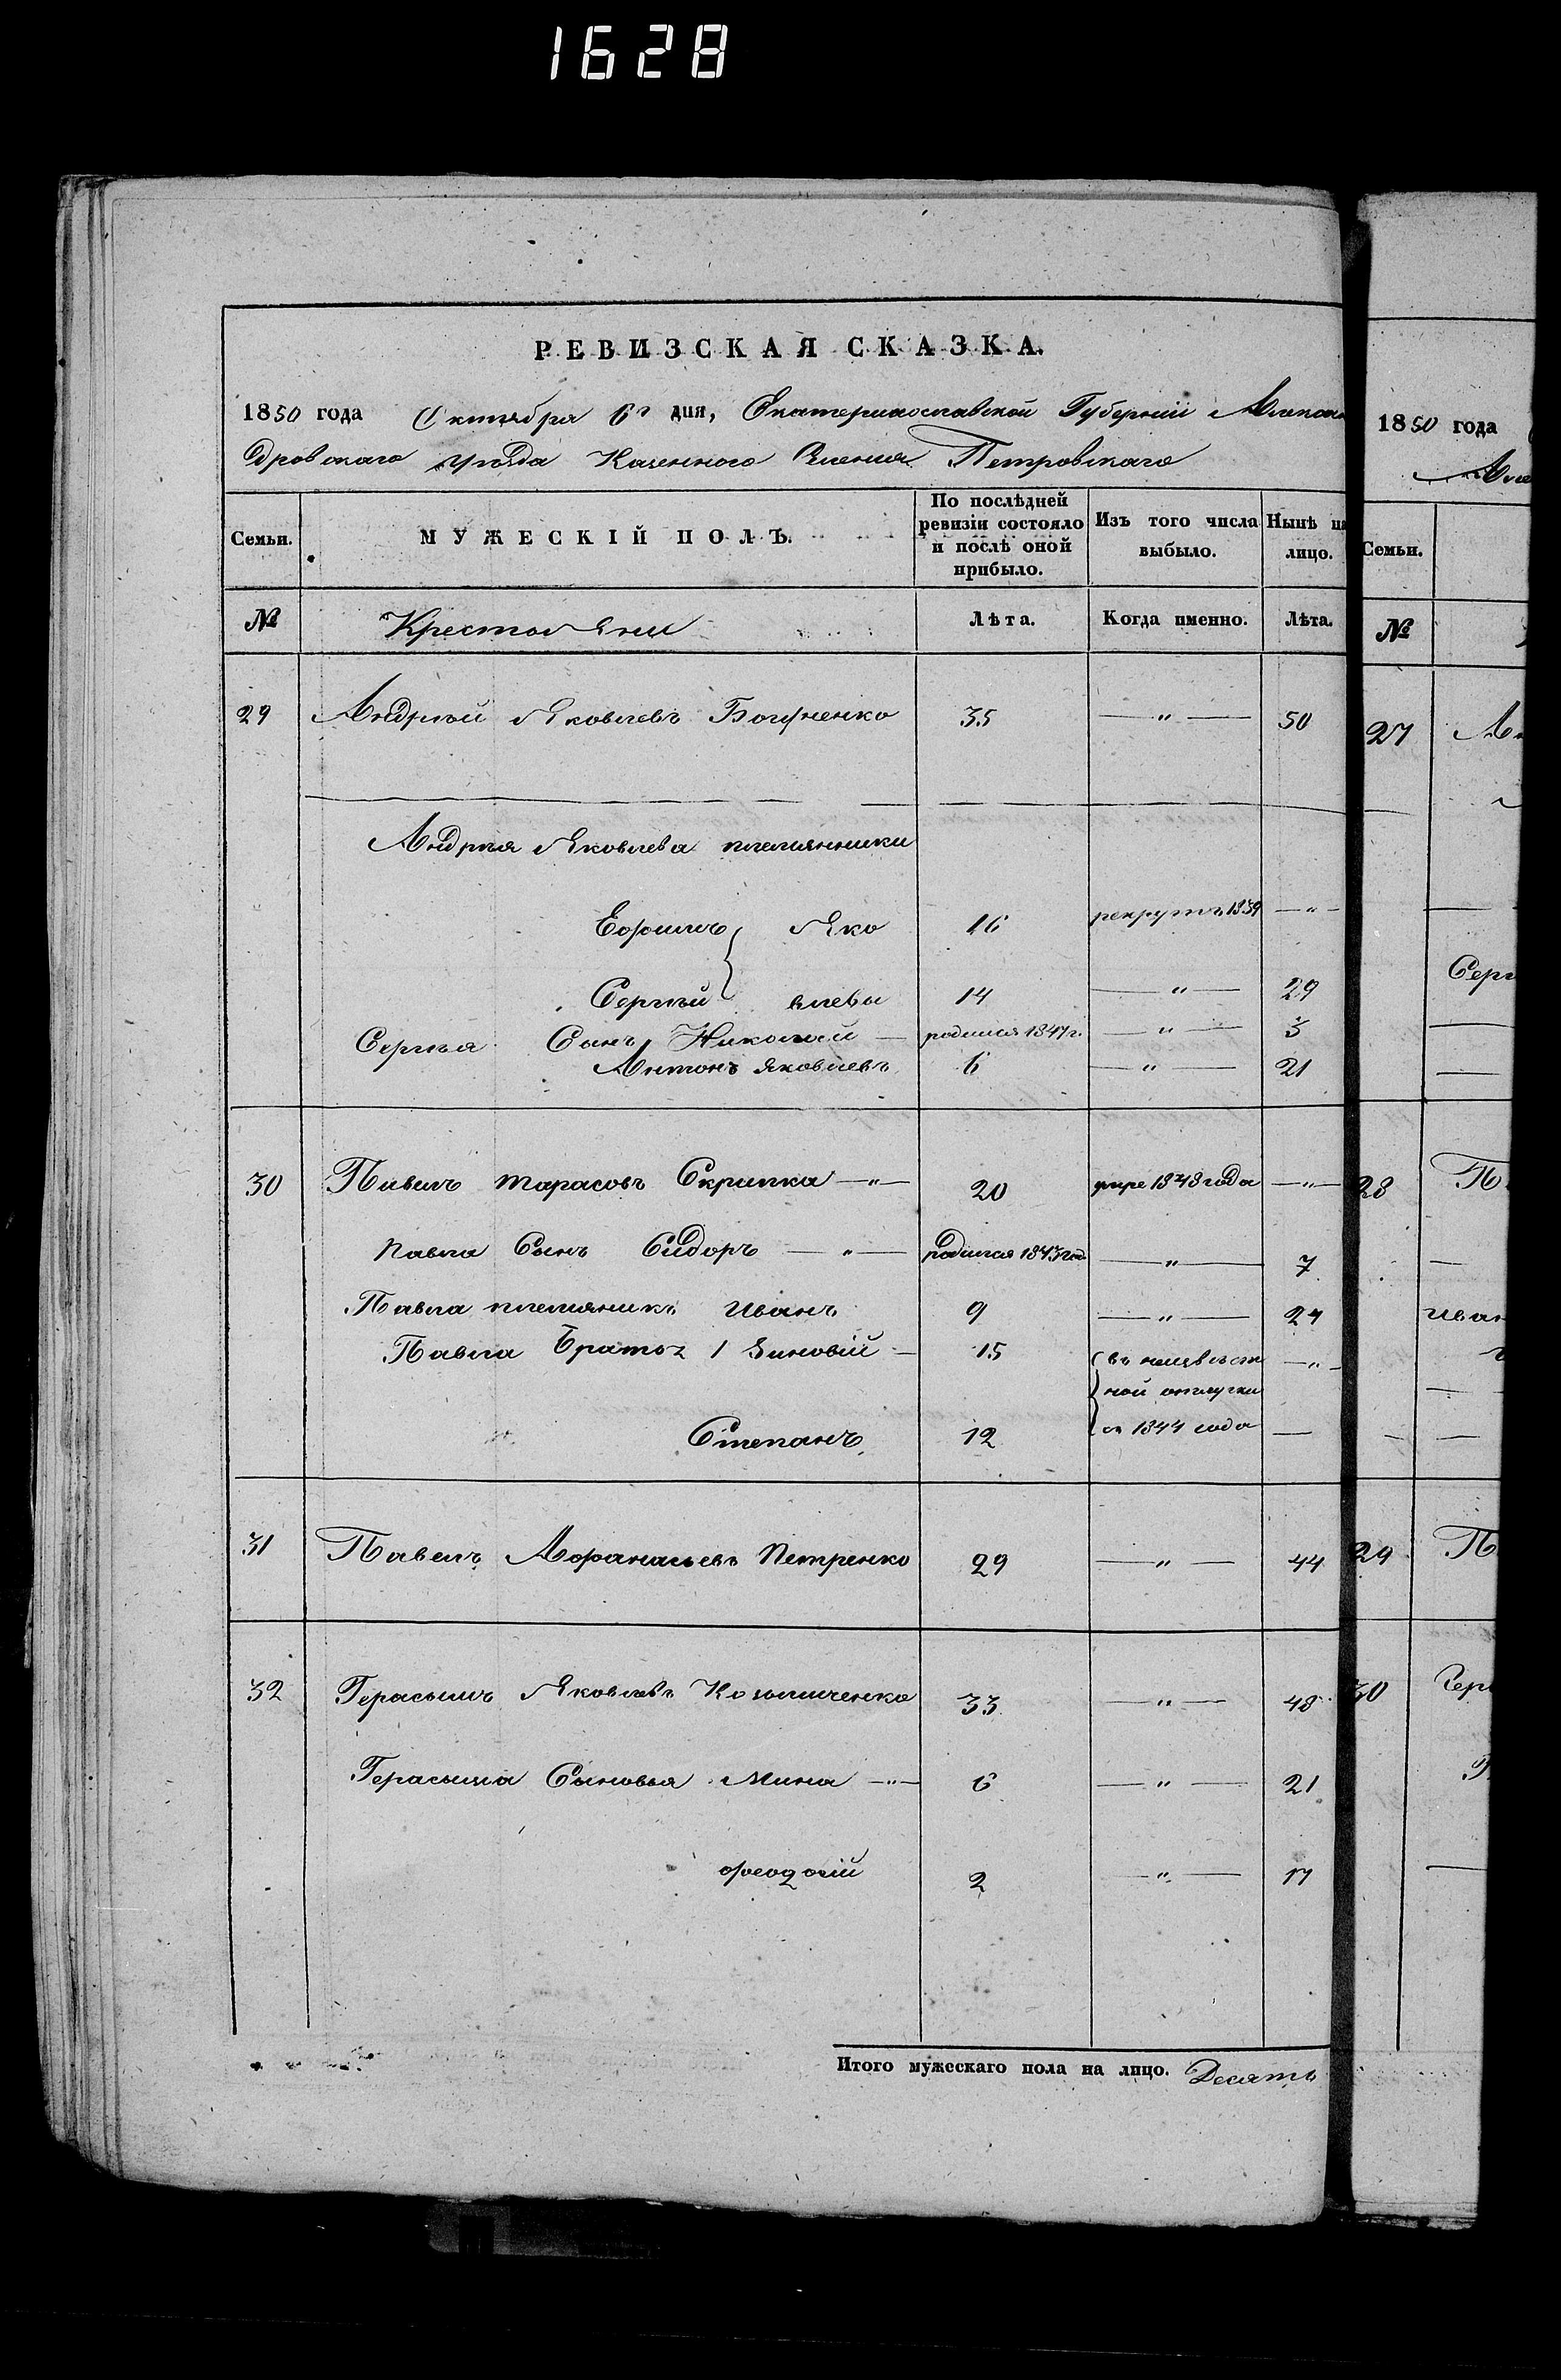 1628
РЕВИЗСКАЯ СКАЗКА.
1850 года Октября 6го дня, Екатеринославской Губерніи Алексан
дровскаго уѣзда Казенного Петровскаго
Семьи. МУЖЕСКІЙ ПОЛЪ. По послѣдней ревизіи состояло и послѣ оной прибыло. Изъ того числа выбыло. Нынѣ на лицо.
№ Крестьяни Лѣта. Когда именно. Лѣта.
29 Андрѣй Яковлевъ 35 —"— 50
Андрѣя Яковлева племянники
Ефимъ Яко 16 рекрутъ 1839 —"—
Сергѣй влевы 14 —"— 29
Сергѣя Сынъ Николай — родился 1847 г. —"— 3
Антонъ Яковлевъ 6 —"— 21
30 Павелъ Тарасовъ Скрипка —"— 20 умре 1848 года —"—
Павла Сынъ Сидоръ —"— родился 1843 год —"— 7
Павла племяникъ Иванъ 9 —"— 24
Павла Братьz 1 Зиновій — 15 въ неизвѣст —"—
ной отлучки
Степанъ 12 съ 1844 года —
31 Павелъ Афанасьевъ Петренко 29 —"— 44
32 Герасымъ Яковлевъ Козьмиченко 33 —"— 48
Герасыма Сыновья Мина —"— 6 —"— 21
феодосій 2 —"— 17
Итого мужескаго пола на лицо. Десять
1850 года
Але
Семьи.
№
27 Ан
Серг
28 П
Иван
29 П
30 Гер